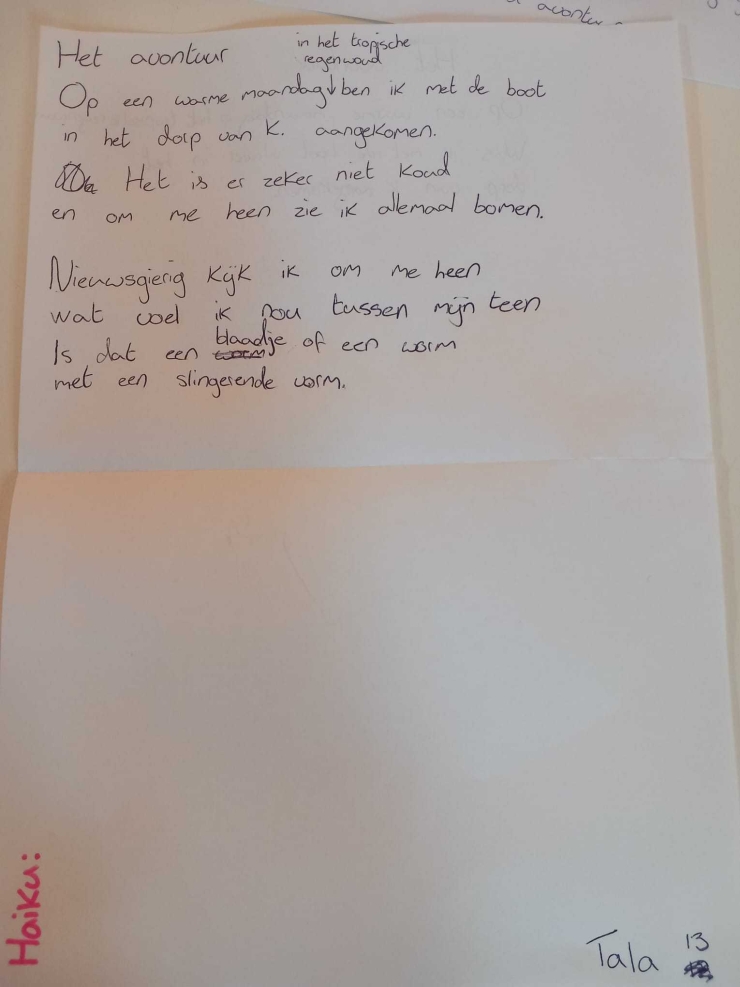 avontu
Het avontuur
in het tropische
regenwoud
Op een warme maandag↓ben ik met de boot
in het dorp van K. aangekomen.
Het is er zeker niet koud
en om me heen zie ik allemaal bomen.
Nieuwsgierig kijk ik om me heen
wat voel ik nou tussen mijn teen
Is dat een blaadje of een worm
met een slingerende vorm.
Haiku:
Tala 13